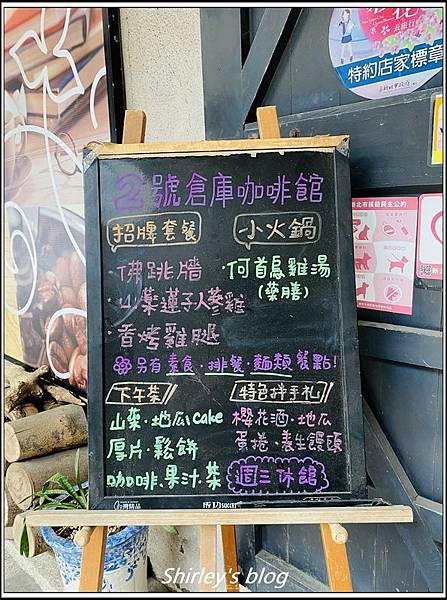 去旅行
特約店家標章
新北市寵物飼主公約
2號倉庫咖啡館
招牌套餐
小火鍋
·佛跳牆
·山藥蓮子人蔘雞
·香烤雞腿
·何首烏雞湯
(藥膳)
另有素食·排餐·麵類餐點!
下午茶
山藥·地瓜cake
厚片·鬆餅
咖啡·果汁·茶
特色拌手礼
櫻花酒·地瓜
蛋捲·養生饅頭
週三休館
Shirley's blog